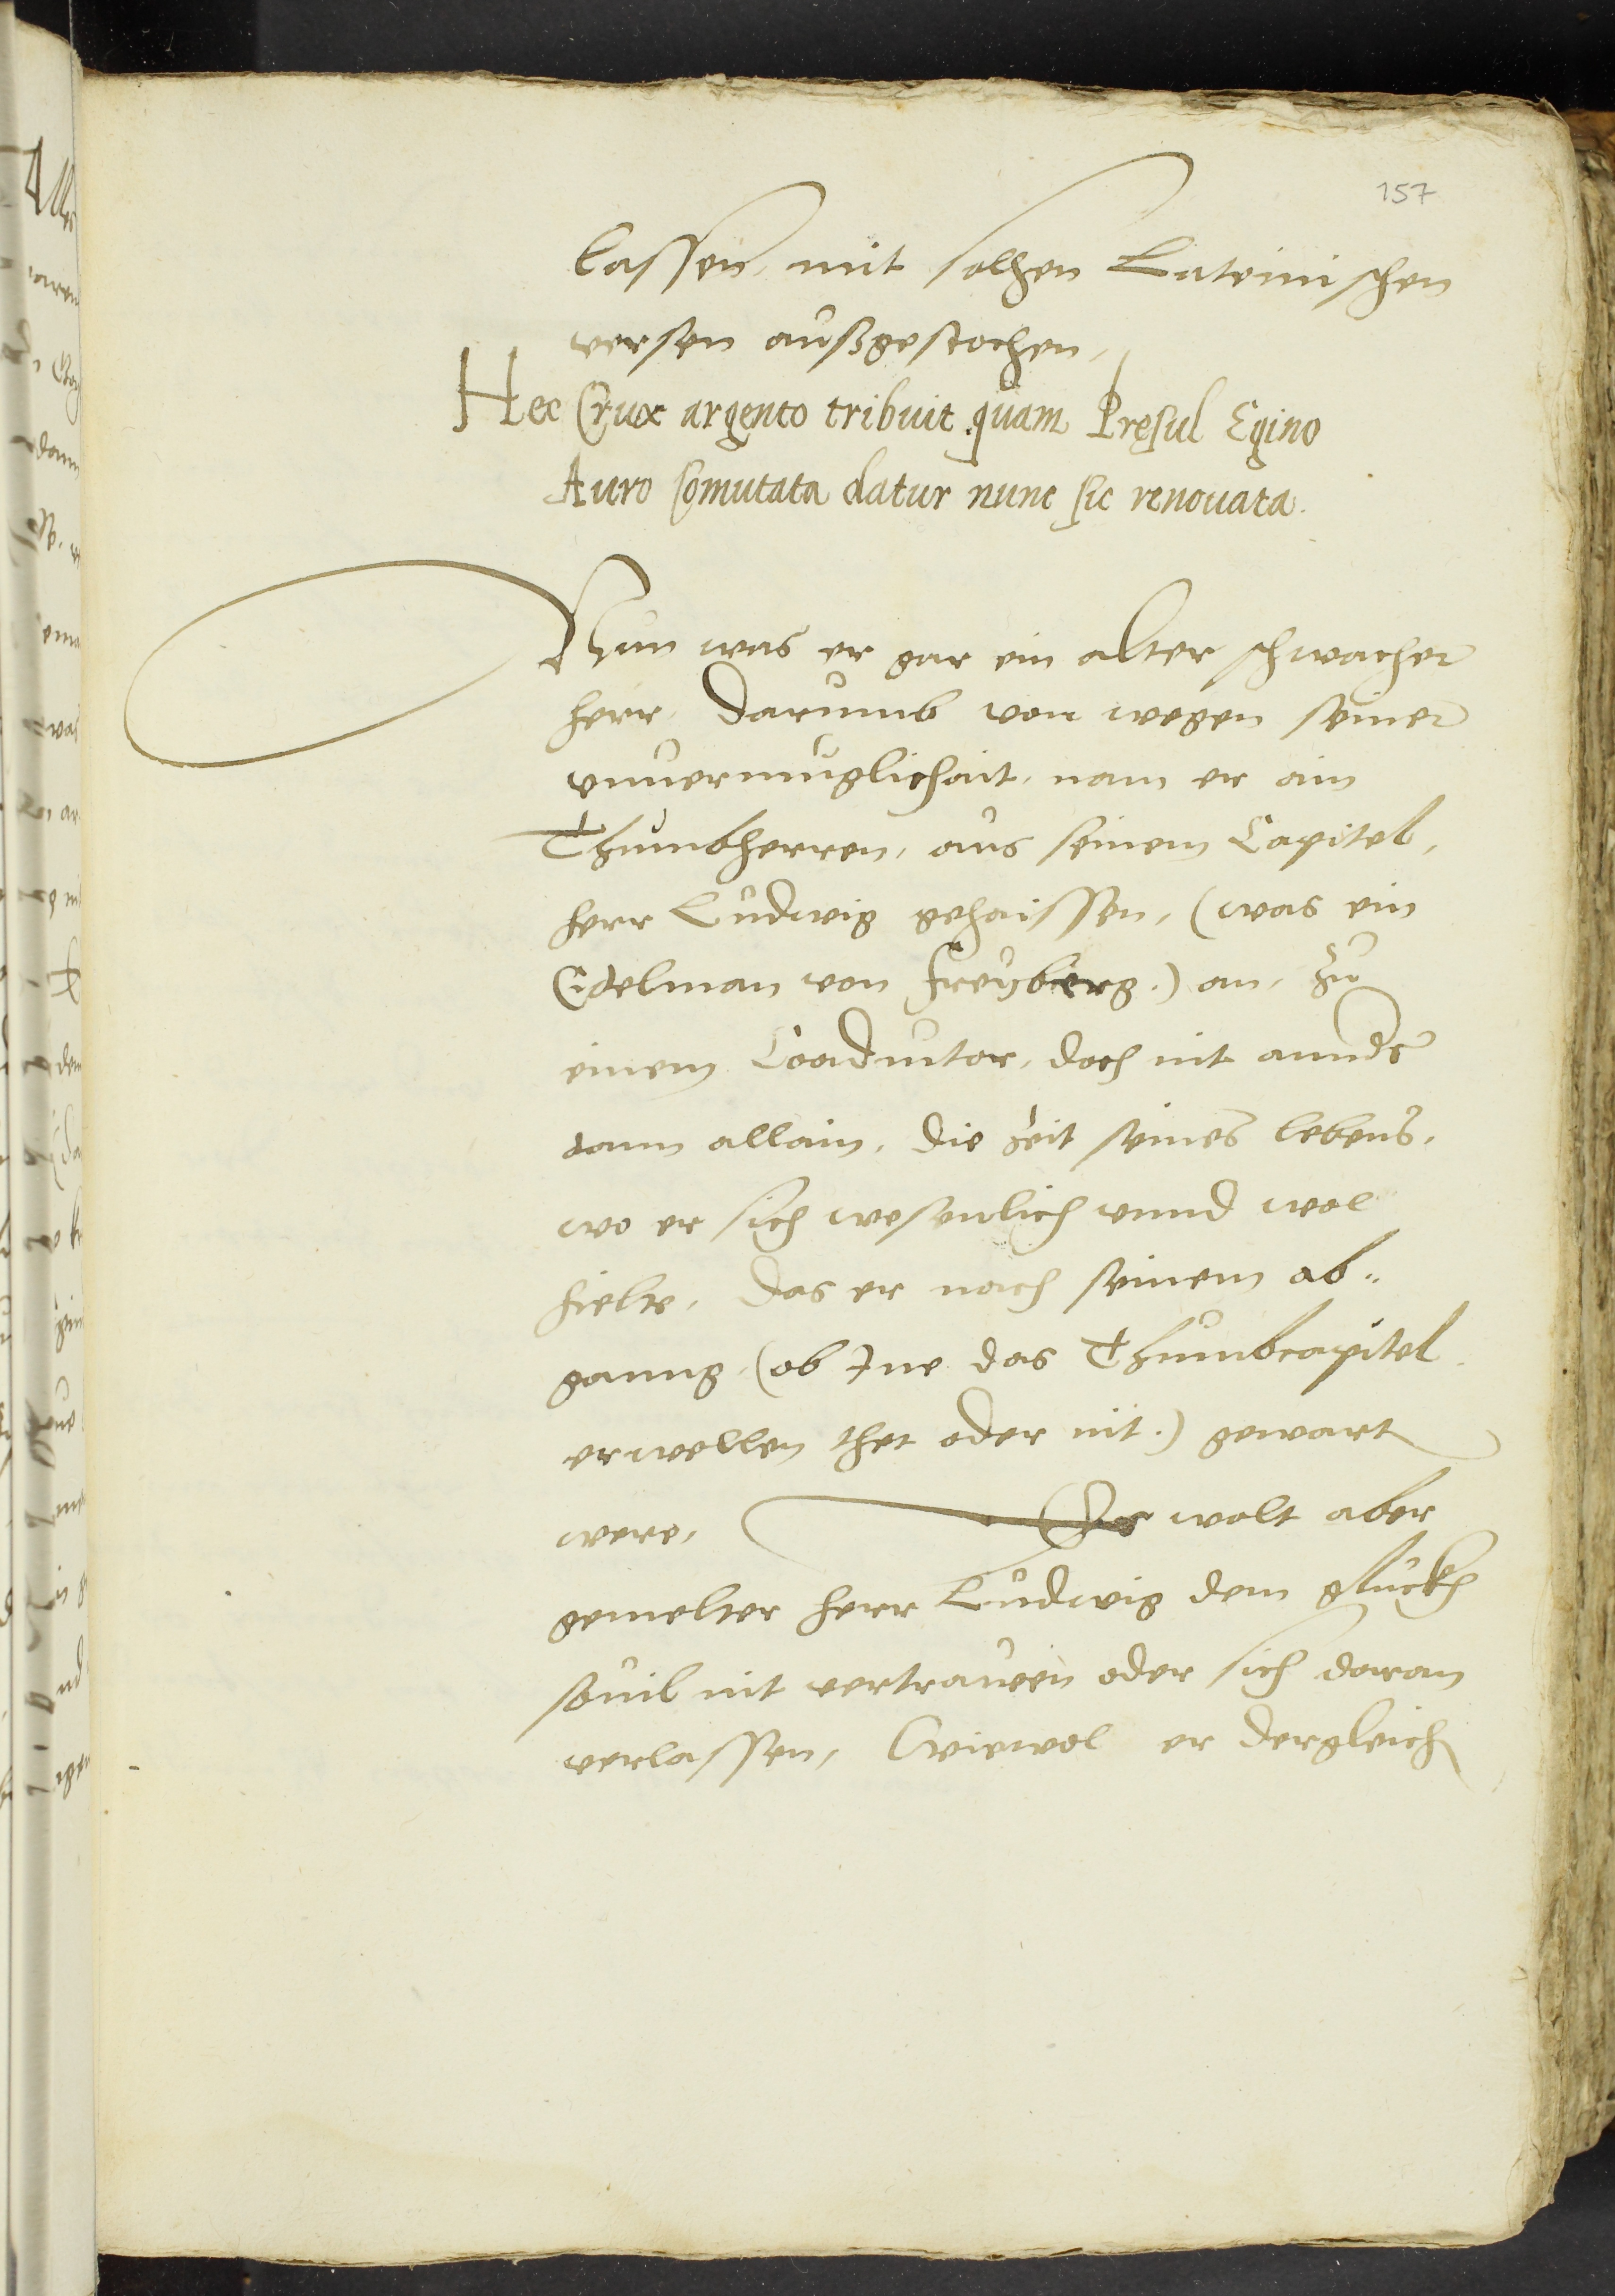 157
lassen, mit solhen Lateinischen
versen außgestochen,
Hec Crux argento tribuit quam Pręsul Egino
Auro Comutata datur nunc sic renouata.
Nun was er gar ein alter schwacher
herr, Darumb von wegen seiner
unuermuglichait, nam er ain
Thumbherren, aus seinem Capitel,
herr Ludwig gehaissen, (was ein
Edelman von Freyberg.) an, zu
einem Coadiutor, doch nit annders
dann allain, die zeit seines lebens,
wo er sich wesenlich unnd wol
hielte, das er nach seinem ab„
ganng, (ob Ine das Thumbcapitel
erwellen thet oder nit.) gewart
were, Es wolt aber
gemelter herr Ludwig dem glückh
souil nit vertrauen oder sich daran
verlassen, Wiewol er dergleich